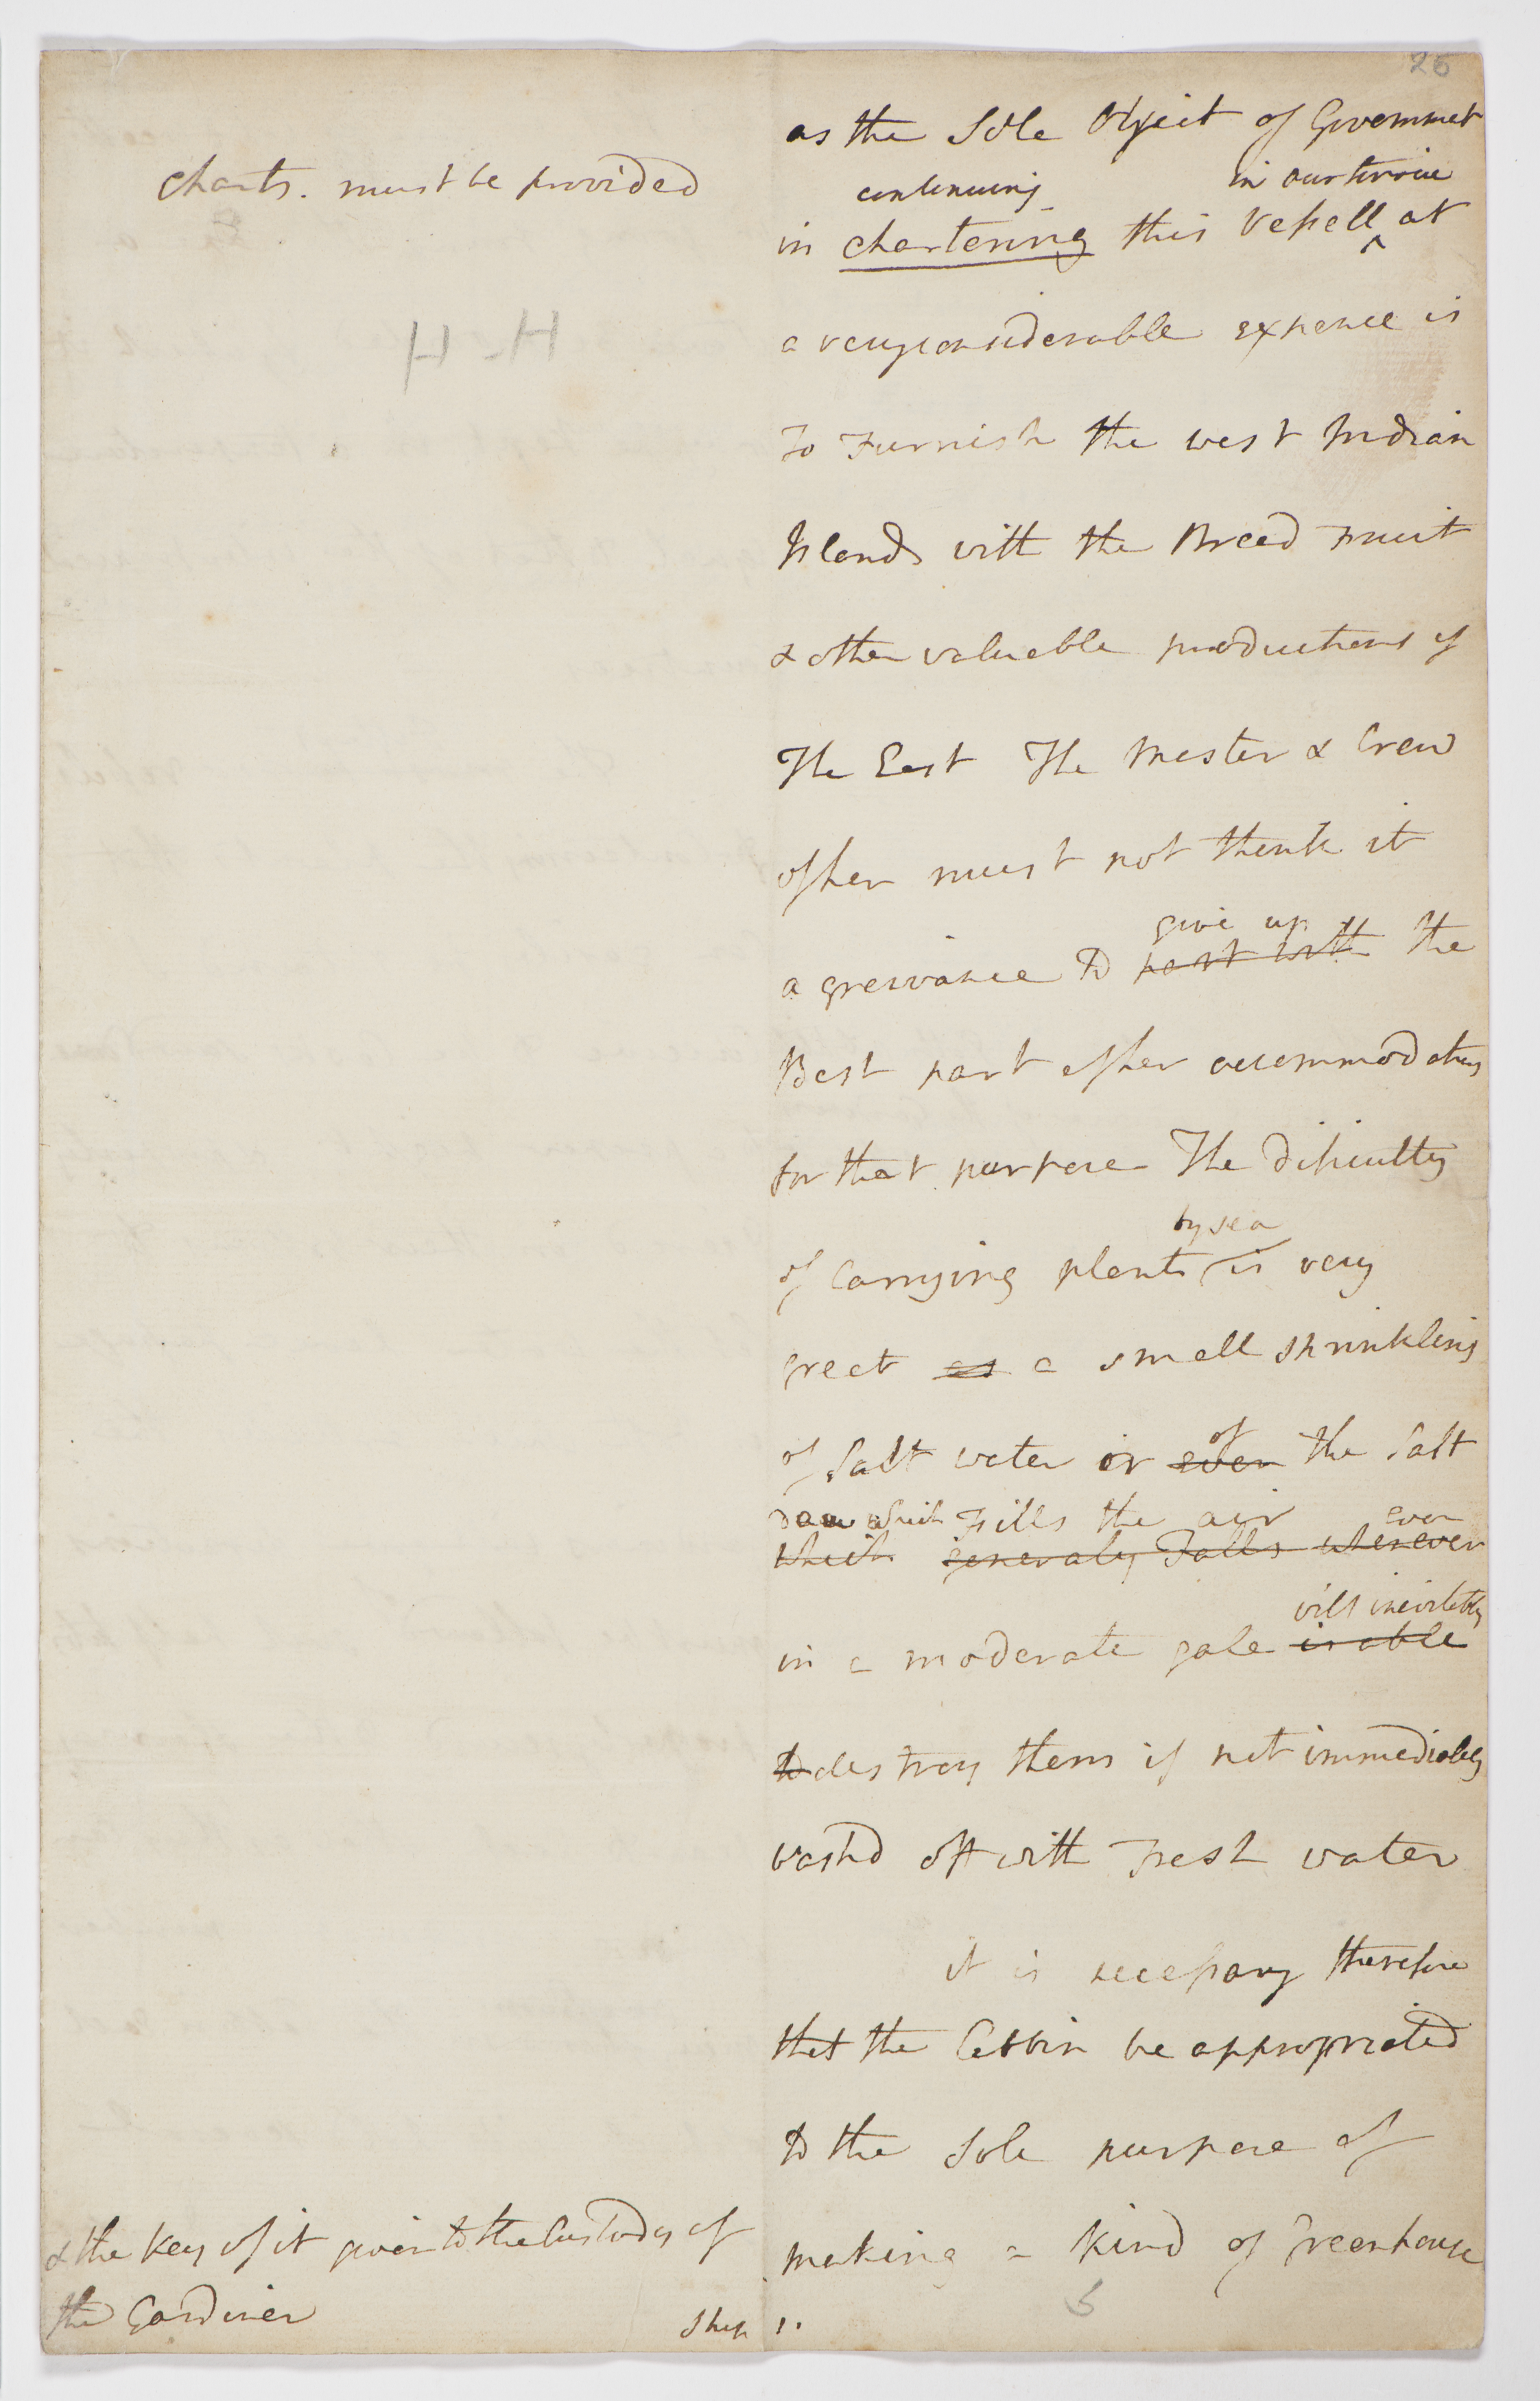 26
charts. must be provided
H-H
as the Sole Object of Governmet
continuing in our service
in chartering this Vessell ^ at
a very considerable expence is
To Furnish the west Indian
Islands with the Bread Fruit
& other valuable productions of
The East The Master & Crew
of her must not think it
give up
a greivance to part with the
Best part of her accommodations
for that purpose The Dificulty
by sea
of Carrying plants is very
great as a small sprinkling
of
of Salt water or even the Salt
Dew which Fills the air even
which generaly Falls whenever
will inevitably
in a moderate gale is able
to destroy them if not immediately
washd off with Fresh water
it is necessary therefore
that the Cabbin be appropriated
to the Sole purpose of
making a kind of Greenhouse
& the Key of it given to the Custody of
the Gardiner
Ship 1.